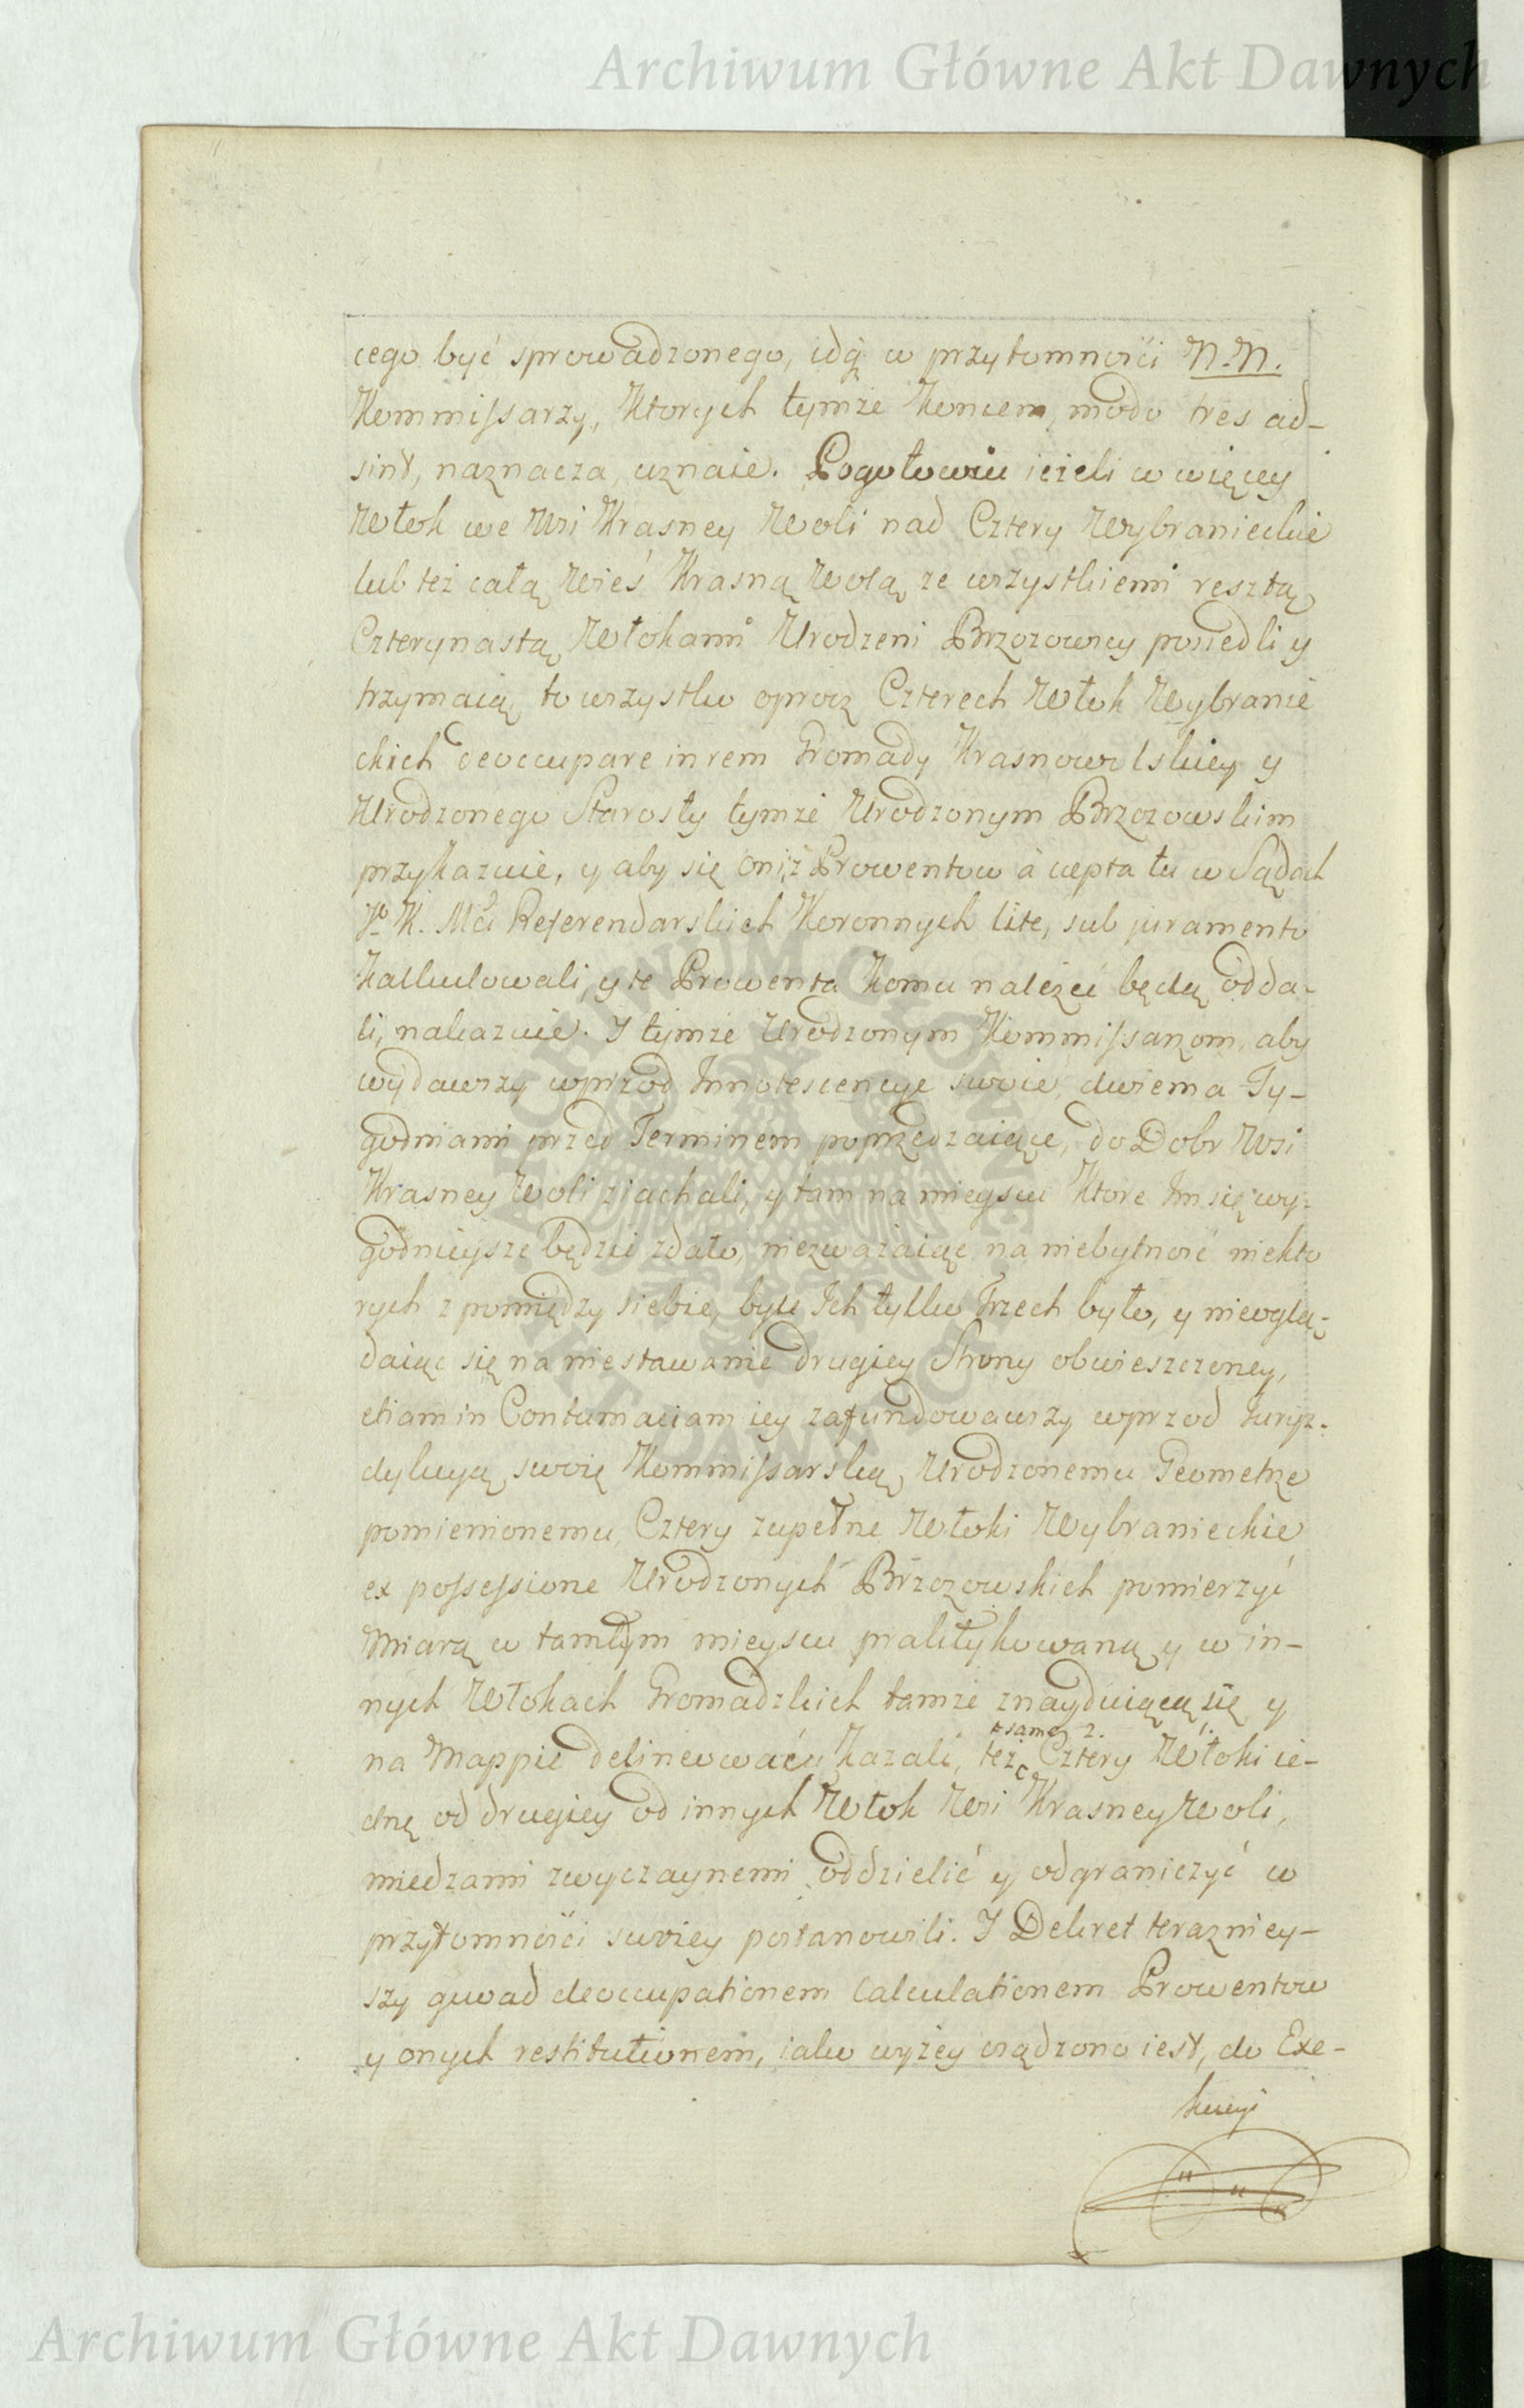 Archiwum Główne Akt Dawnych
cego być sprowadzonego, idq́ w przytomności N.N.
Kommissarzy, Ktorych tymże Koncem, modo tres ad-
sint, naznacza, uznaie. Pogotowiu ieżeli w więcey
Włok we Wsi Krasney Woli nad Cztery Wybranieckie
lub też całą Wieś Krasną Wolą ze wszystkiemi resztą
Czterynastą Włokami Urodzeni Brzozowscy posiedli y
trzymaią to wszystko oprocz Czterech Włok Wybranie
ckich deoccupare in rem Gromady Krasnowolskiey y
Urodzonego Starosty tymże Urodzonym Brzozowskim
przykazuie, y aby się oniż Prowentow à cepta tu w Sądach
Jo K. Mci Referendarskich Koronnych lite, sub juramento
Kalkulowali, y te Prowenta Komu należeć będą odda-
li, nakazuie. I tymże Urodzonym Kommissarzom, aby
wydawszy wprzod Innotescencye swoie, dwiema Ty-
godniami przed Terminem poprzedzaiące, do Dobr Wsi
Krasney Woli ziachali, y tam na mieyscu Ktore Im się wy-
godnieysze będzie zdało, niezważaiąc na niebytność niekto
rych z pomiędzy siebie, byle Ich tylko Trzech było, y nieoglą-
daiąc się na niestawanie drugiey Strony obwieszczoney,
etiam in Contumaciam iey zafundowawszy wprzod Juryz-
dykcyą swoię Kommissarską, Urodzonemu Geometrze
pomienionemu, Cztery zupełne Włoki Wybranieckie
ex possessione Urodzonych Brzozowskich pomierzyć
Miarą w tamtym mieyscu praktykowaną y w in-
nych Włokach Gromadzkich tamże znayduiącą się y
na Mappie delineować Kazali, też Cztery Włoki ie-
same 2. 1.
dnę od drugiey od innych Włok Wsi Krasney Woli,
miedzami zwyczaynemi oddzielić y odgraniczyć w
przytomności swoiey postanowili. I Dekret terazniey-
szy quoad deoccupationem Calculationem Prowentow
y onych restitutionem, iako wyżey osądzono iest, do Exe-
kucyi
Archiwum Główne Akt Dawnych